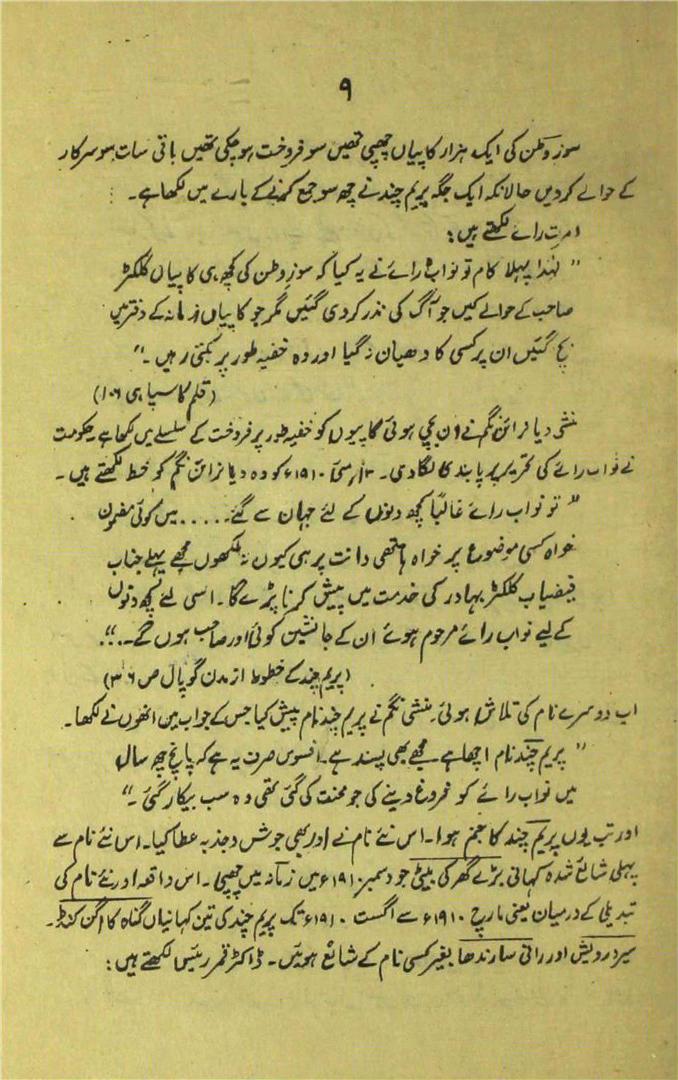 ۹
سوز وطن کی ایک ہزار کاپیاں چھپی تھیں سو فروخت ہو چکی تھیں باقی سات سو سرکار
کے حوالے کر دیں حالانکہ ایک جگہ پریم چند نے چھ سو جمع کرنے کے بارے میں لکھا ہے۔
امرت رائے لکھتے ہیں:
"لہٰذا پہلا کام تو نواب رائے نے یہ کیا کہ سوز وطن کی کچھ ہی کاپیاں کلکٹر
صاحب کے حوالے کیں جو آگ کی نذر کر دی گئیں مگر جو کاپیاں زمانہ کے دفتر میں
بچ گئیں ان پر کسی کا دھیان نہ گیا اور وہ خفیہ طور پر بکتی رہیں۔"
(قلم کا سپاہی ۱۰۶)
منشی دیا نرائن نگم نے ان بچی ہوئی کاپیوں کو خفیہ طور پر فروخت کے سلسلے میں لکھا ہے حکومت
نے نواب رائے کی تحریر پر پابندی لگا دی۔ ۱۳ مئی ۱۹۱۰ء کو وہ دیا نرائن نگم کو خط لکھتے ہیں۔
"تو نواب رائے غالباً کچھ دنوں کے لئے جہان سے گئے۔.... میں کوئی مضمون
خواہ کسی موضوع پر خواہ ہاتھی دانت پر ہی کیوں نہ لکھوں مجھے پہلے جناب
فیضیاب کلکٹر بہادر کی خدمت میں پیش کرنا پڑے گا۔ اسی لئے کچھ دنوں
کے لیے نواب رائے مرحوم ہوئے ان کے جانشین کوئی اور صاحب ہوں گے۔.."
(پریم چند کے خطوط از مدن گوپال ص ۳۶)
اب دوسرے نام کی تلاش ہوئی۔ منشی نگم نے پریم چند نام پیش کیا جس کے جواب میں انھوں نے لکھا۔
"پریم چند نام اچھا ہے۔ مجھے بھی پسند ہے۔ افسوس صرف یہ ہے کہ پانچ چھ سال
میں نواب رائے کو فروغ دینے کی جو محنت کی گئی تھی وہ سب بیکار گئی۔"
اور تب یوں پریم چند کا جنم ہوا۔ اس نئے نام نے اور بھی جوش و جذبہ عطا کیا۔ اس نئے نام سے
پہلی شائع شدہ کہانی بڑے گھر کی بیٹی جو دسمبر ۱۹۱۰ء میں زمانہ میں چھپی۔ اس واقعہ اور نئے نام کی
تبدیلی کے درمیان یعنی مارچ ۱۹۱۰ء سے اگست ۱۹۱۰ء تک پریم چند کی تین کہانیاں گناہ کا اگن کنڈ۔
سیر درویش اور رانی سارندھا بغیر کسی نام کے شائع ہوئیں۔ ڈاکٹر قمر رئیس لکھتے ہیں: